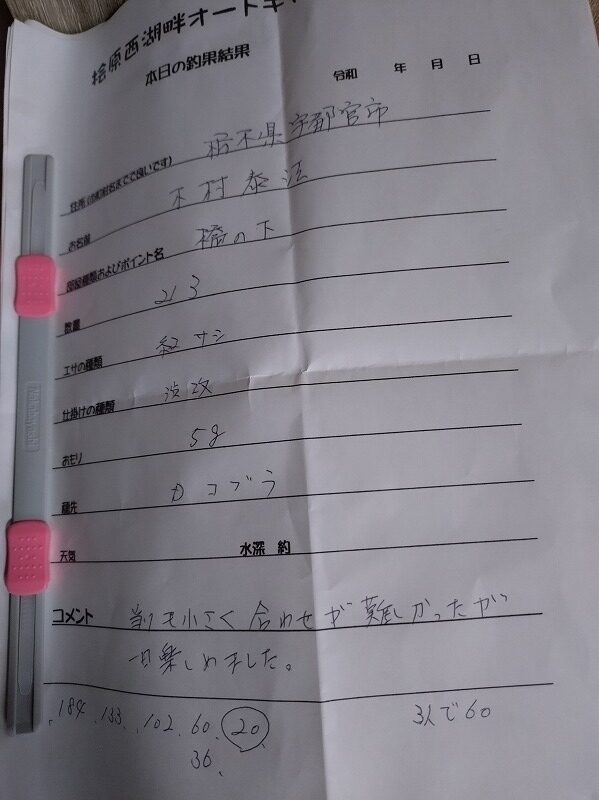 桧原西湖畔オートキャ
本日の釣果結果
令和 年 月 日
住所(市町村名まで良いです) 栃木県宇都宮市
お名前 木村泰法
部屋種類およびポイント名 橋の下
数量 213
エサの種類 紅サシ
仕掛けの種類 渋改
おもり 5g
穂先 カコブラ
天気 水深 約
コメント 当りも小さく合わせが難しかったが
一日楽しめました。
184、133、102、60、20、
36、
3人で60